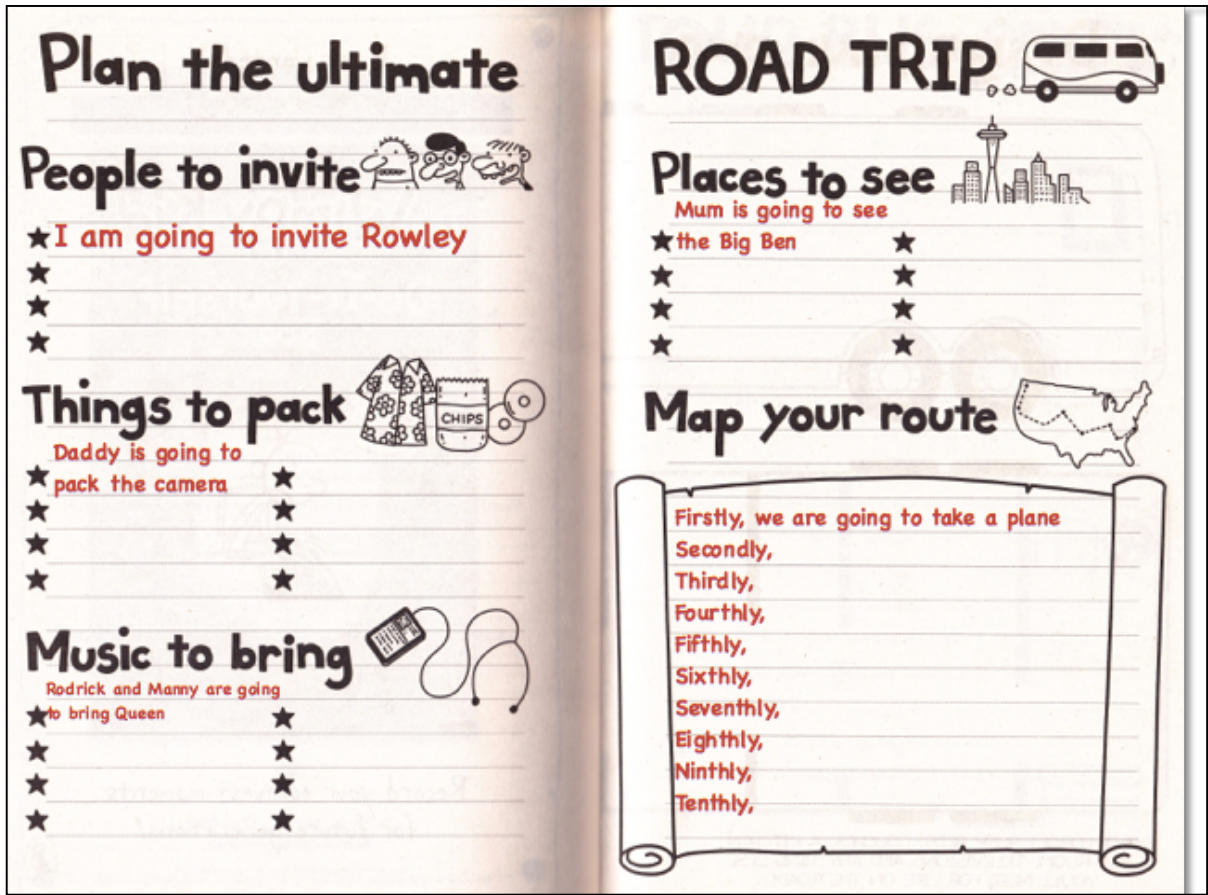 Plan the ultimate
People to invite
I am going to invite Rowley
Things to pack
CHIPS
Daddy is going to
pack the camera
Music to bring
Rodrick and Manny are going
to bring Queen
ROAD TRIP
Places to see
Mum is going to see
the Big Ben
Map your route
Firstly, we are going to take a plane
Secondly,
Thirdly,
Fourthly,
Fifthly,
Sixthly,
Seventhly,
Eighthly,
Ninthly,
Tenthly,